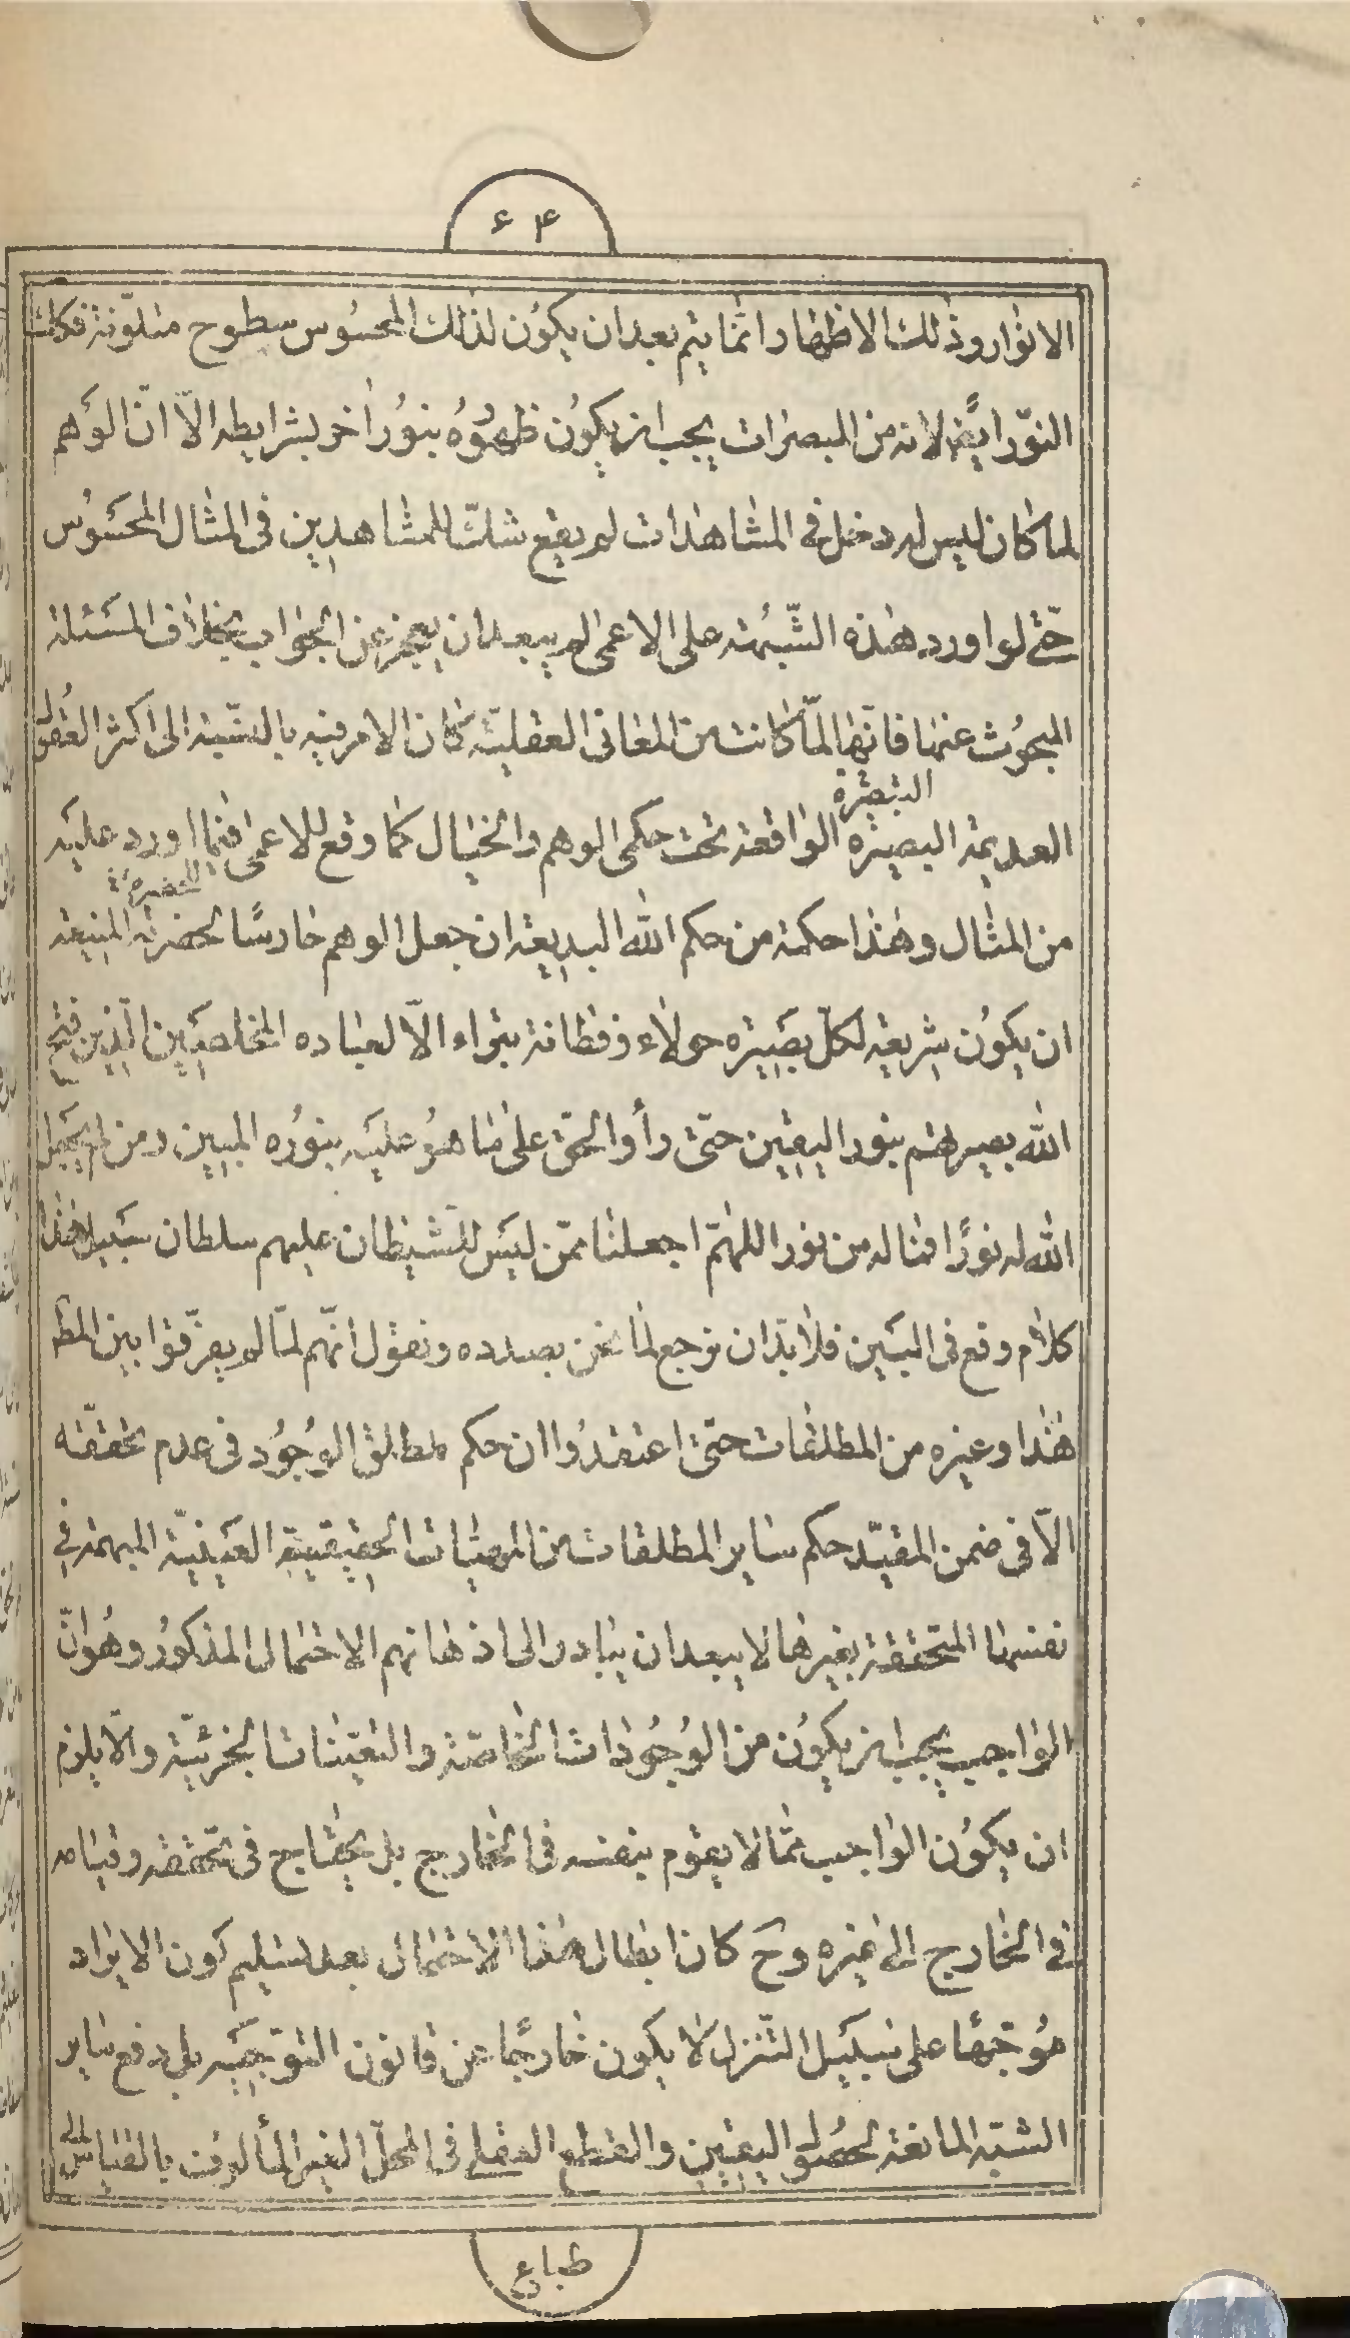 ۶۴
الانوار وذلك الاظهار انما يتم بعد ان يكون لذلك المحسوس سطوح متلونة فكان
النور ايضا لانه من المبصرات يجب ان يكون ظهوره بنور اخر بشرايطه الا ان الوهم
لما كان ليس له دخل في المشاهدات لم يقع شك للمشاهدين في المثال المحسوس
حتى لو اورد هذه الشبهة على الاعمى لم يبعد ان يعجز عن الجواب بخلاف المسئلة
المبحوث عنها فانها لما كانت من المعانى العقلية كان الامر فيه بالنسبة الى اكثر العقول
التبصرة
العديمة البصيرة الواقعة تحت حكمى الوهم والخيال كما وقع للاعمى فيما اورد عليه
للحضرة
من المثال وهذا حكمة من حكم الله البديعة ان جعل الوهم حارسا لحضرته المنيعة
ان يكون شريعة لكل بصيرة حولاء وفطانة بتراء الا لعباده المخلصين الذين فتح
الله بصيرتهم بنور اليقين حتى رأوا الحق على ما هو عليه بنوره المبين ومن لم يجعل
الله له نورا فما له من نور اللهم اجعلنا ممن ليس للشيطان عليهم سلطان سبيل هذا
كلام وقع فى البين فلا بد ان نرجع لما نحن بصدده ونقول انهم لما لم يفرقوا بين المط
هذا وغيره من المطلقات حتى اعتقدوا ان حكم مطلق الوجود فى عدم تحققه
الا فى ضمن المقيد حكم ساير المطلقات من المهيات الحقيقية العينية المبهمة في
نفسها المتحققة بغيرها لا يبعد ان يتبادر الى اذهانهم الاحتمال المذكور وهو ان
الواجب يجب ان يكون من الوجودات الخاصة والتعينات الجزئية والا يلزم
ان يكون الواجب مما لا يقوم بنفسه فى الخارج بل يحتاج فى تحققه وقيامه
في الخارج الى غيره وح كان ابطال هذا الاحتمال بعد تسليم كون الايراد
موجها على سبيل التنزل لا يكون خارجا عن قانون التوجيه بل دفع ساير
الشبه المانعة لحصول اليقين والقطع العقلي فى المحل الغير المألوف بالقياس الى
طباع